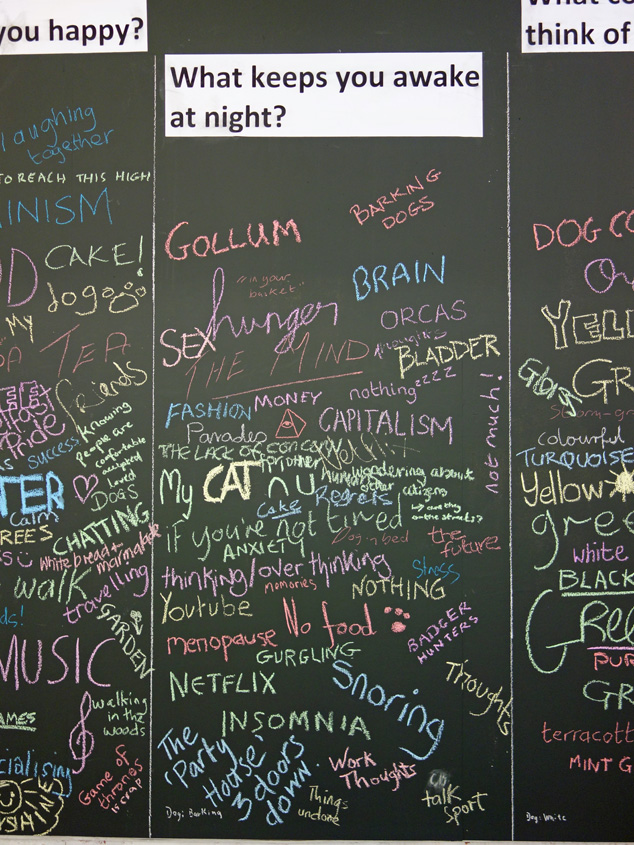 you happy?
laughing
together
TO REACH THIS HIGH
INISM
CAKE!
dog
MY
TEA
friends
Pride
success
Knowing
people are
comfortable
accepted
loved
DOGS
TER
Calm
REES
CHATTING
white bread +
marmalade
walk
travelling
ds!
GARDEN
MUSIC
walking
in the
woods
AMES
cialising
Game of
thrones
is crap!
What keeps you awake
at night?
BARKING
DOGS
GOLLUM
BRAIN
"in your
basket"
hunger
ORCAS
SEX
THE MIND
thoughts
BLADDER
nothing zzzz
MONEY
FASHION
CAPITALISM
Parades
not much!
THE LACK OF CONCERN
for other
humans
My
CAT
wondering about
other citizens
→ are they
on the streets?
Cake
Regrets
if you're not tired
Dog in bed
the
future
ANXIETY
thinking/over thinking
Stress
memories
NOTHING
Youtube
No food
menopause
BADGER
HUNTERS
GURGLING
NETFLIX
Snoring
Thoughts
INSOMNIA
The
'Party
House'
3 doors
down.
Work
Thoughts
Things
undone
talk
sport
Dog: Barking
think of
DOG CO
YELL
GR
colourful
TURQUOISE
Yellow
gree
white
BLACK
GREE
PUR
GR
terracott
MINT G
Dog: White